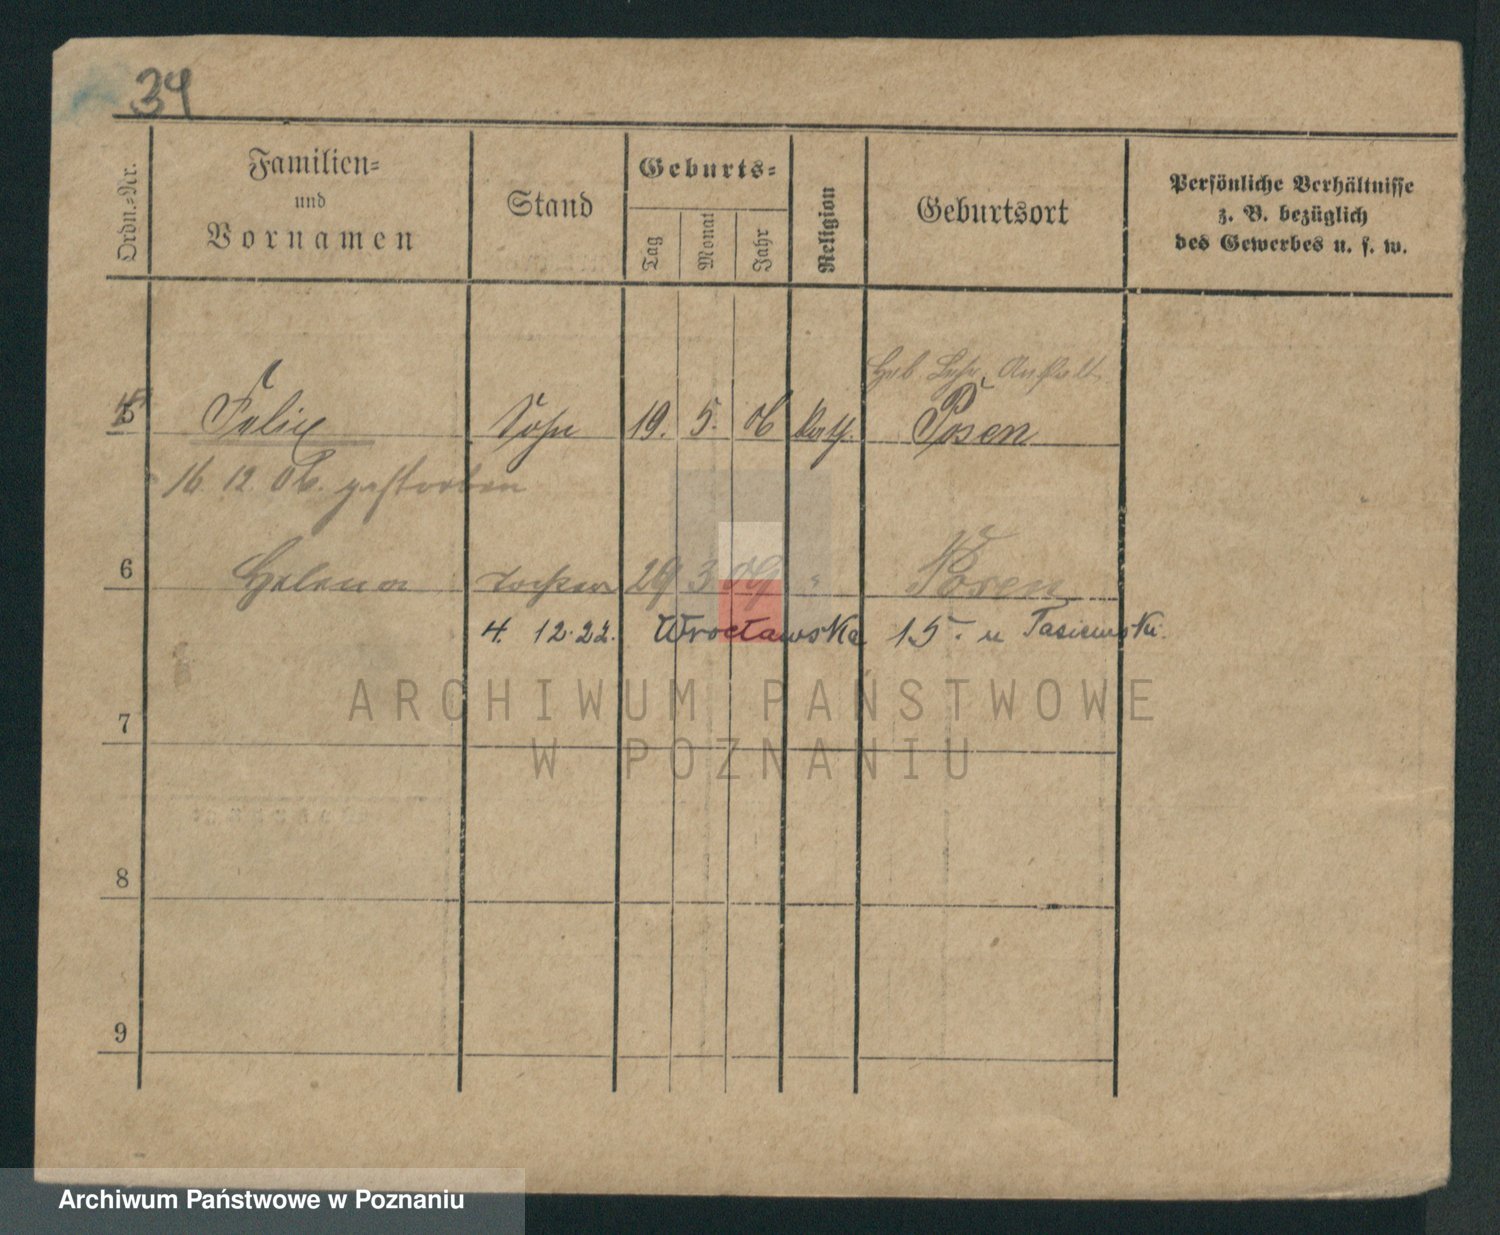 34
Ordn.-Nr.
Familien-
und
Vornamen
Stand
Geburts-
Tag
Monat
Jahr
Religion
Geburtsort
Persönliche Verhältnisse
z. B. bezüglich
des Gewerbes u. s. w.
Anstalt
5 Felix Sohn 19. 5. 06 kath. Posen
16. 12. 06. gestorben
6 Helena Tochter 29 3 09 " Posen
4. 12. 22. Wrocławska 15. u
7
8
9
ARCHIWUM PAŃSTWOWE
W POZNANIU
Archiwum Państwowe w Poznaniu